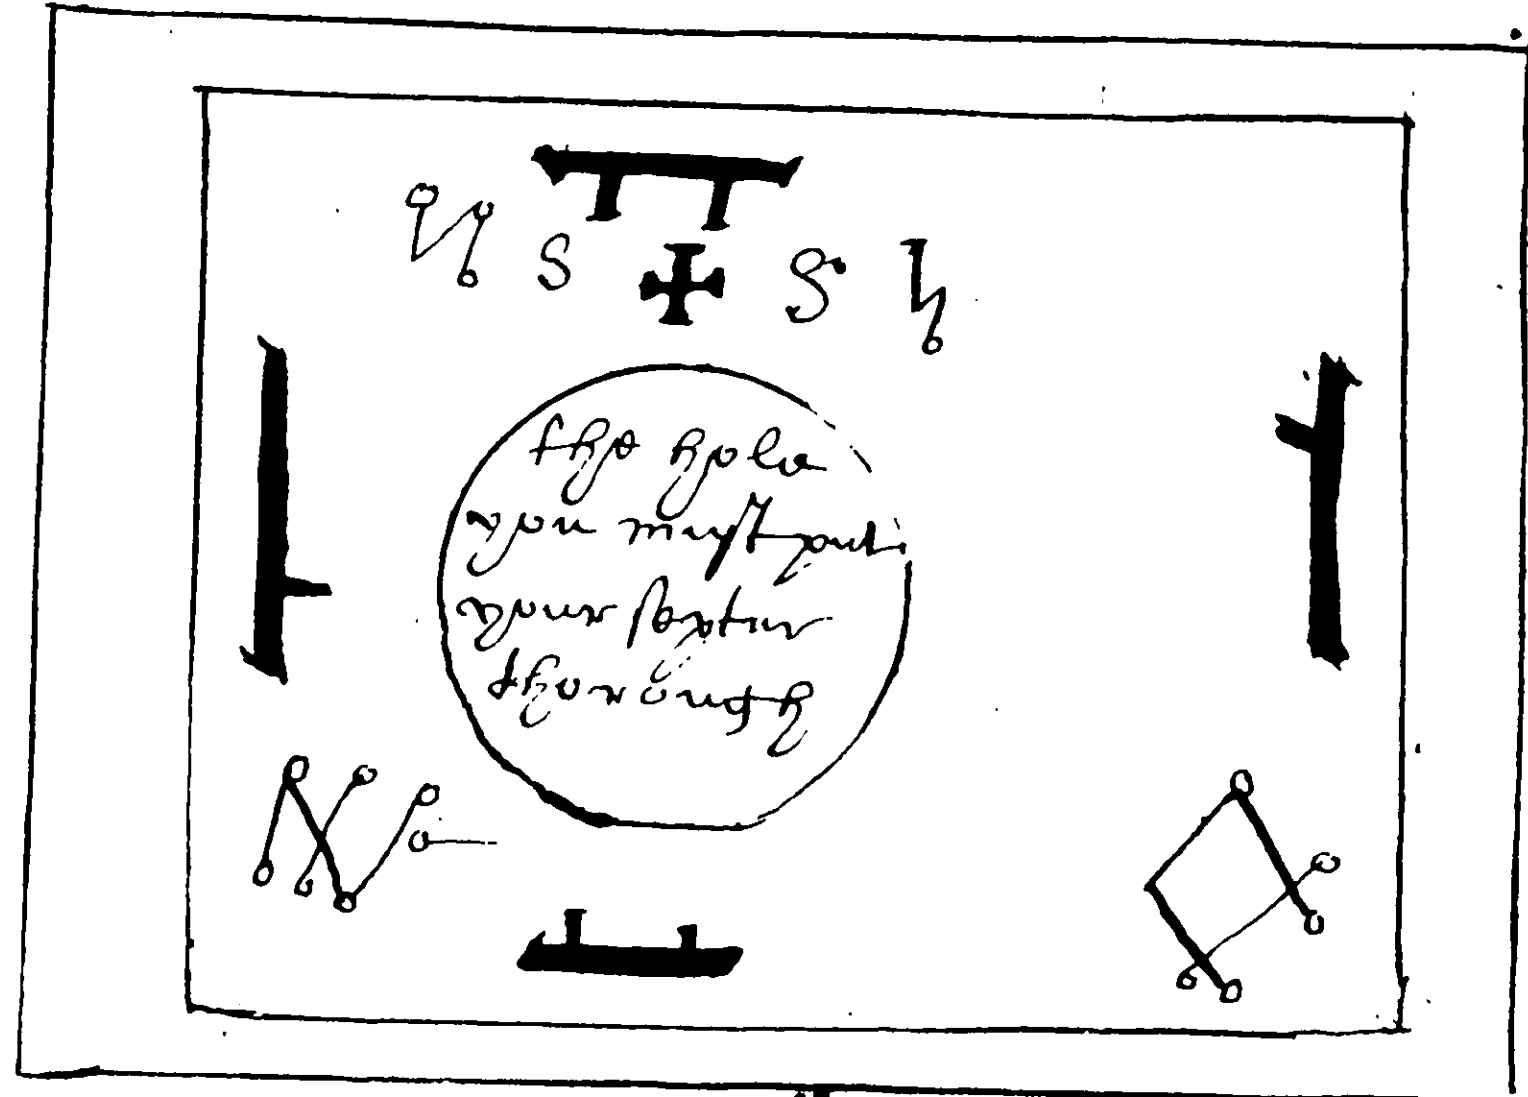 S S
the hole
you must put
your septer
thorough